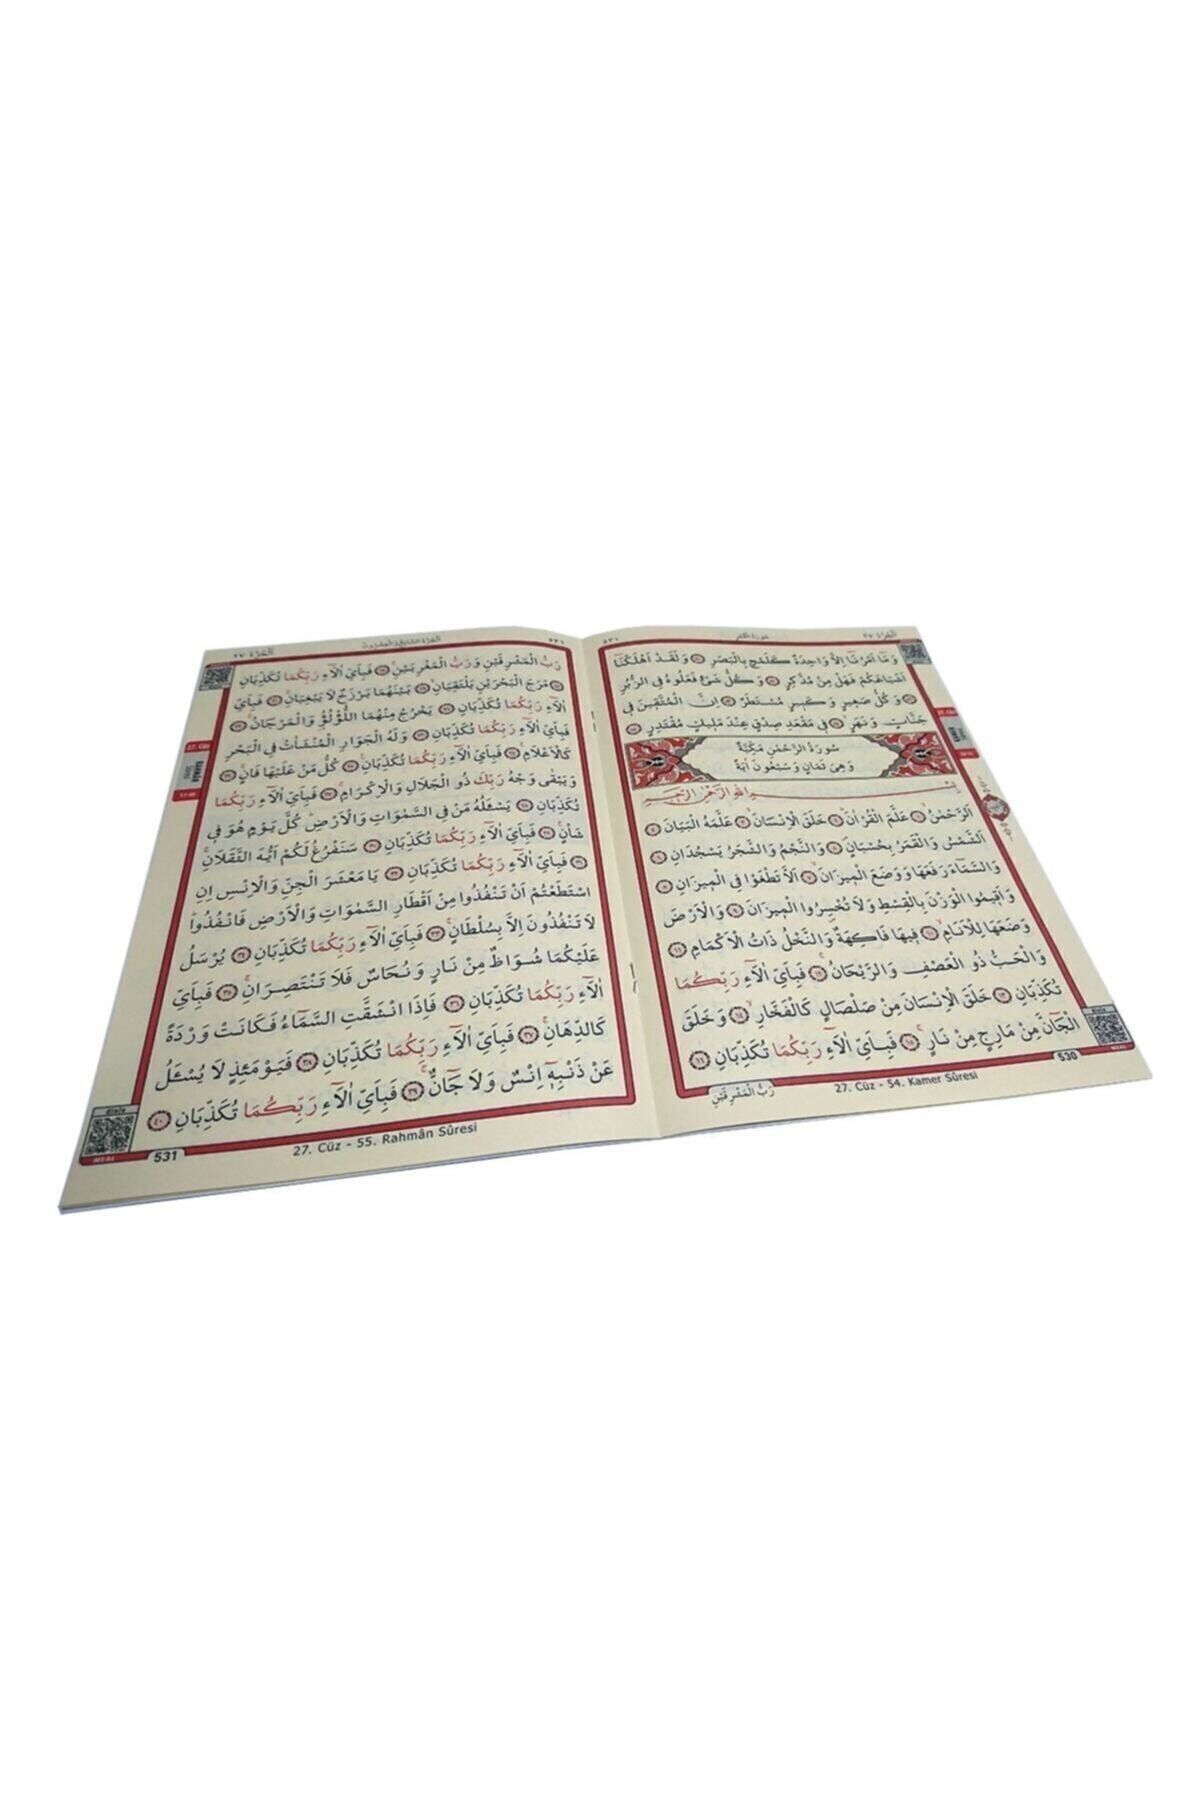 الجزء ٢٧
سورة القمر
وَمَٓا اَمْرُنَٓا اِلَّا وَاحِدَةٌ كَلَمْحٍ بِالْبَصَرِ ﴿٥٠﴾ وَلَقَدْ اَهْلَكْنَٓا
اَشْيَاعَكُمْ فَهَلْ مِنْ مُدَّكِرٍ ﴿٥١﴾ وَكُلُّ شَيْءٍ فَعَلُوهُ فِي الزُّبُرِ
﴿٥٢﴾ وَكُلُّ صَغِيرٍ وَكَبِيرٍ مُسْتَطَرٌ ﴿٥٣﴾ اِنَّ الْمُتَّقِينَ فِي
جَنَّاتٍ وَنَهَرٍ ﴿٥٤﴾ فِي مَقْعَدِ صِدْقٍ عِنْدَ مَلِيكٍ مُقْتَدِرٍ ﴿٥٥﴾
سُورَةُ الرَّحْمٰنِ مَكِّيَّةٌ
وَهِيَ ثَمَانٍ وَسَبْعُونَ اٰيَةً
بِسْمِ اللّٰهِ الرَّحْمٰنِ الرَّحِيمِ
اَلرَّحْمٰنُ ﴿١﴾ عَلَّمَ الْقُرْاٰنَ ﴿٢﴾ خَلَقَ الْاِنْسَانَ ﴿٣﴾ عَلَّمَهُ الْبَيَانَ ﴿٤﴾
اَلشَّمْسُ وَالْقَمَرُ بِحُسْبَانٍ ﴿٥﴾ وَالنَّجْمُ وَالشَّجَرُ يَسْجُدَانِ ﴿٦﴾
وَالسَّمَٓاءَ رَفَعَهَا وَوَضَعَ الْمِيزَانَ ﴿٧﴾ اَلَّا تَطْغَوْا فِي الْمِيزَانِ ﴿٨﴾
وَاَقِيمُوا الْوَزْنَ بِالْقِسْطِ وَلَا تُخْسِرُوا الْمِيزَانَ ﴿٩﴾ وَالْاَرْضَ
وَضَعَهَا لِلْاَنَامِ ﴿١٠﴾ فِيهَا فَاكِهَةٌ وَالنَّخْلُ ذَاتُ الْاَكْمَامِ ﴿١١﴾
وَالْحَبُّ ذُو الْعَصْفِ وَالرَّيْحَانُ ﴿١٢﴾ فَبِاَيِّ اٰلَٓاءِ رَبِّكُمَا
تُكَذِّبَانِ ﴿١٣﴾ خَلَقَ الْاِنْسَانَ مِنْ صَلْصَالٍ كَالْفَخَّارِ ﴿١٤﴾ وَخَلَقَ
الْجَٓانَّ مِنْ مَارِجٍ مِنْ نَارٍ ﴿١٥﴾ فَبِاَيِّ اٰلَٓاءِ رَبِّكُمَا تُكَذِّبَانِ ﴿١٦﴾
رَبُّ الْمَشْرِقَيْنِ
27. Cüz - 54. Kamer Sûresi
530
الجزء ٢٧
رَبُّ الْمَشْرِقَيْنِ وَرَبُّ الْمَغْرِبَيْنِ ﴿١٧﴾ فَبِاَيِّ اٰلَٓاءِ رَبِّكُمَا تُكَذِّبَانِ
﴿١٨﴾ مَرَجَ الْبَحْرَيْنِ يَلْتَقِيَانِ ﴿١٩﴾ بَيْنَهُمَا بَرْزَخٌ لَا يَبْغِيَانِ ﴿٢٠﴾ فَبِاَيِّ
اٰلَٓاءِ رَبِّكُمَا تُكَذِّبَانِ ﴿٢١﴾ يَخْرُجُ مِنْهُمَا اللُّؤْلُؤُ وَالْمَرْجَانُ ﴿٢٢﴾
فَبِاَيِّ اٰلَٓاءِ رَبِّكُمَا تُكَذِّبَانِ ﴿٢٣﴾ وَلَهُ الْجَوَارِ الْمُنْشَاٰتُ فِي الْبَحْرِ
كَالْاَعْلَامِ ﴿٢٤﴾ فَبِاَيِّ اٰلَٓاءِ رَبِّكُمَا تُكَذِّبَانِ ﴿٢٥﴾ كُلُّ مَنْ عَلَيْهَا فَانٍ ﴿٢٦﴾
وَيَبْقٰى وَجْهُ رَبِّكَ ذُو الْجَلَالِ وَالْاِكْرَامِ ﴿٢٧﴾ فَبِاَيِّ اٰلَٓاءِ رَبِّكُمَا
تُكَذِّبَانِ ﴿٢٨﴾ يَسْـَٔلُهُ مَنْ فِي السَّمٰوَاتِ وَالْاَرْضِ كُلَّ يَوْمٍ هُوَ فِي
شَأْنٍ ﴿٢٩﴾ فَبِاَيِّ اٰلَٓاءِ رَبِّكُمَا تُكَذِّبَانِ ﴿٣٠﴾ سَنَفْرُغُ لَكُمْ اَيُّهَ الثَّقَلَانِ
﴿٣١﴾ فَبِاَيِّ اٰلَٓاءِ رَبِّكُمَا تُكَذِّبَانِ ﴿٣٢﴾ يَا مَعْشَرَ الْجِنِّ وَالْاِنْسِ اِنِ
اسْتَطَعْتُمْ اَنْ تَنْفُذُوا مِنْ اَقْطَارِ السَّمٰوَاتِ وَالْاَرْضِ فَانْفُذُوا
لَا تَنْفُذُونَ اِلَّا بِسُلْطَانٍ ﴿٣٣﴾ فَبِاَيِّ اٰلَٓاءِ رَبِّكُمَا تُكَذِّبَانِ ﴿٣٤﴾ يُرْسَلُ
عَلَيْكُمَا شُوَاظٌ مِنْ نَارٍ وَنُحَاسٌ فَلَا تَنْتَصِرَانِ ﴿٣٥﴾ فَبِاَيِّ
اٰلَٓاءِ رَبِّكُمَا تُكَذِّبَانِ ﴿٣٦﴾ فَاِذَا انْشَقَّتِ السَّمَٓاءُ فَكَانَتْ وَرْدَةً
كَالدِّهَانِ ﴿٣٧﴾ فَبِاَيِّ اٰلَٓاءِ رَبِّكُمَا تُكَذِّبَانِ ﴿٣٨﴾ فَيَوْمَئِذٍ لَا يُسْـَٔلُ
عَنْ ذَنْبِهِ اِنْسٌ وَلَا جَٓانٌّ ﴿٣٩﴾ فَبِاَيِّ اٰلَٓاءِ رَبِّكُمَا تُكَذِّبَانِ ﴿٤٠﴾
27. Cüz - 55. Rahmân Sûresi
531